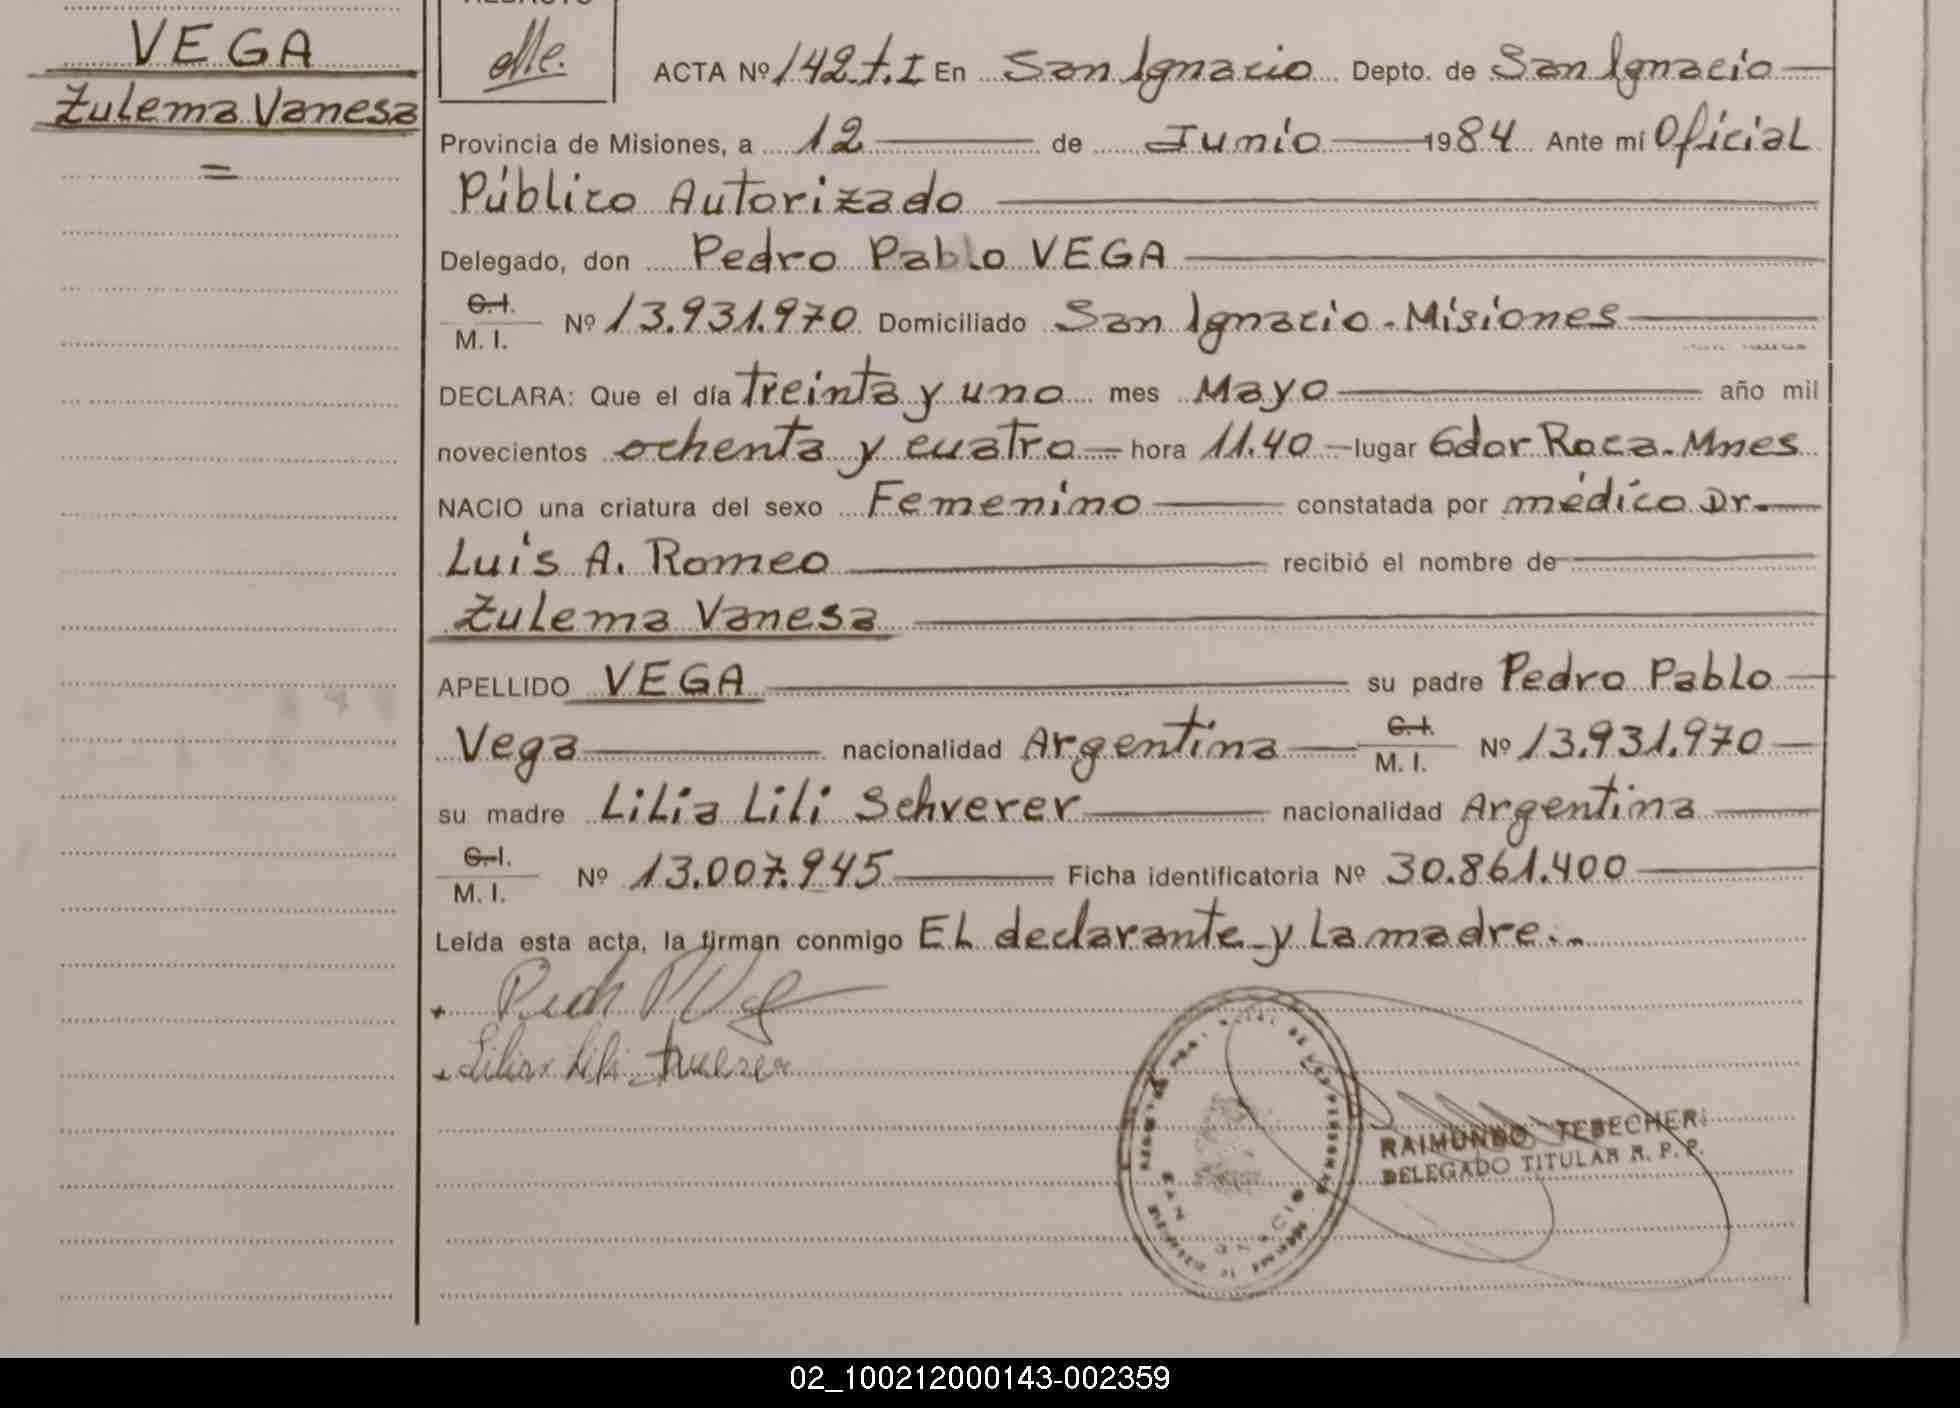 VEGA
Zulema Vanesa
=
ACTA Nº 142.t.I En San Ignacio Depto. de San Ignacio
Provincia de Misiones, a 12 de Junio 1984 Ante mí Oficial
Público Autorizado
Delegado, don Pedro Pablo VEGA
C.I.
M. I. Nº 13.931.970 Domiciliado San Ignacio - Misiones
DECLARA: Que el día treinta y uno mes Mayo año mil
novecientos ochenta y cuatro hora 11.40 lugar Gdor Roca. Mnes
NACIO una criatura del sexo Femenino constatada por médico Dr.
Luis A. Romeo recibió el nombre de
Zulema Vanesa
APELLIDO VEGA su padre Pedro Pablo
Vega nacionalidad Argentina C.I. M. I. Nº 13.931.970
su madre Lilia Lili Schverer nacionalidad Argentina
C.I.
M. I. Nº 13.007.945 Ficha identificatoria Nº 30.861.400
Leída esta acta, la firman conmigo El declarante y la madre.-
RAIMUNDO TEBECHER
DELEGADO TITULAR R. P. P.
02_100212000143-002359